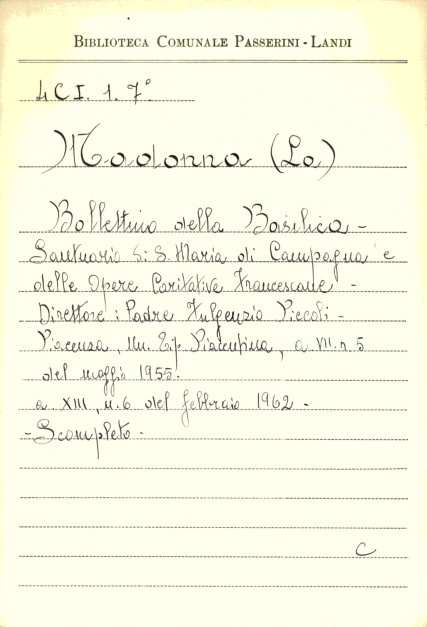 BIBLIOTECA COMUNALE PASSERINI - LANDI
4 C I. 1. 7°
Madonna (La)
Bollettino della Basilica -
Santuario di S. Maria di Campagna e
delle Opere Caritative Francescane -
Direttore: Padre Fulgenzio Piccoli -
Piacenza, Un. Tip. Piacentina, a VII. n. 5
del maggio 1955.
a XIII, n. 6 del febbraio 1962 -
- Scompleto -
C